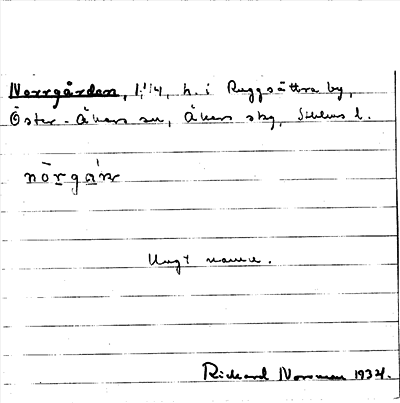 Norrgården, 1:1/4, h. i Ruggsättra by,
Öster-Åkers sn, Åkers skg, Sthlms l.
nörgårn
Ungt namn.
Rickard Norsman 1934.